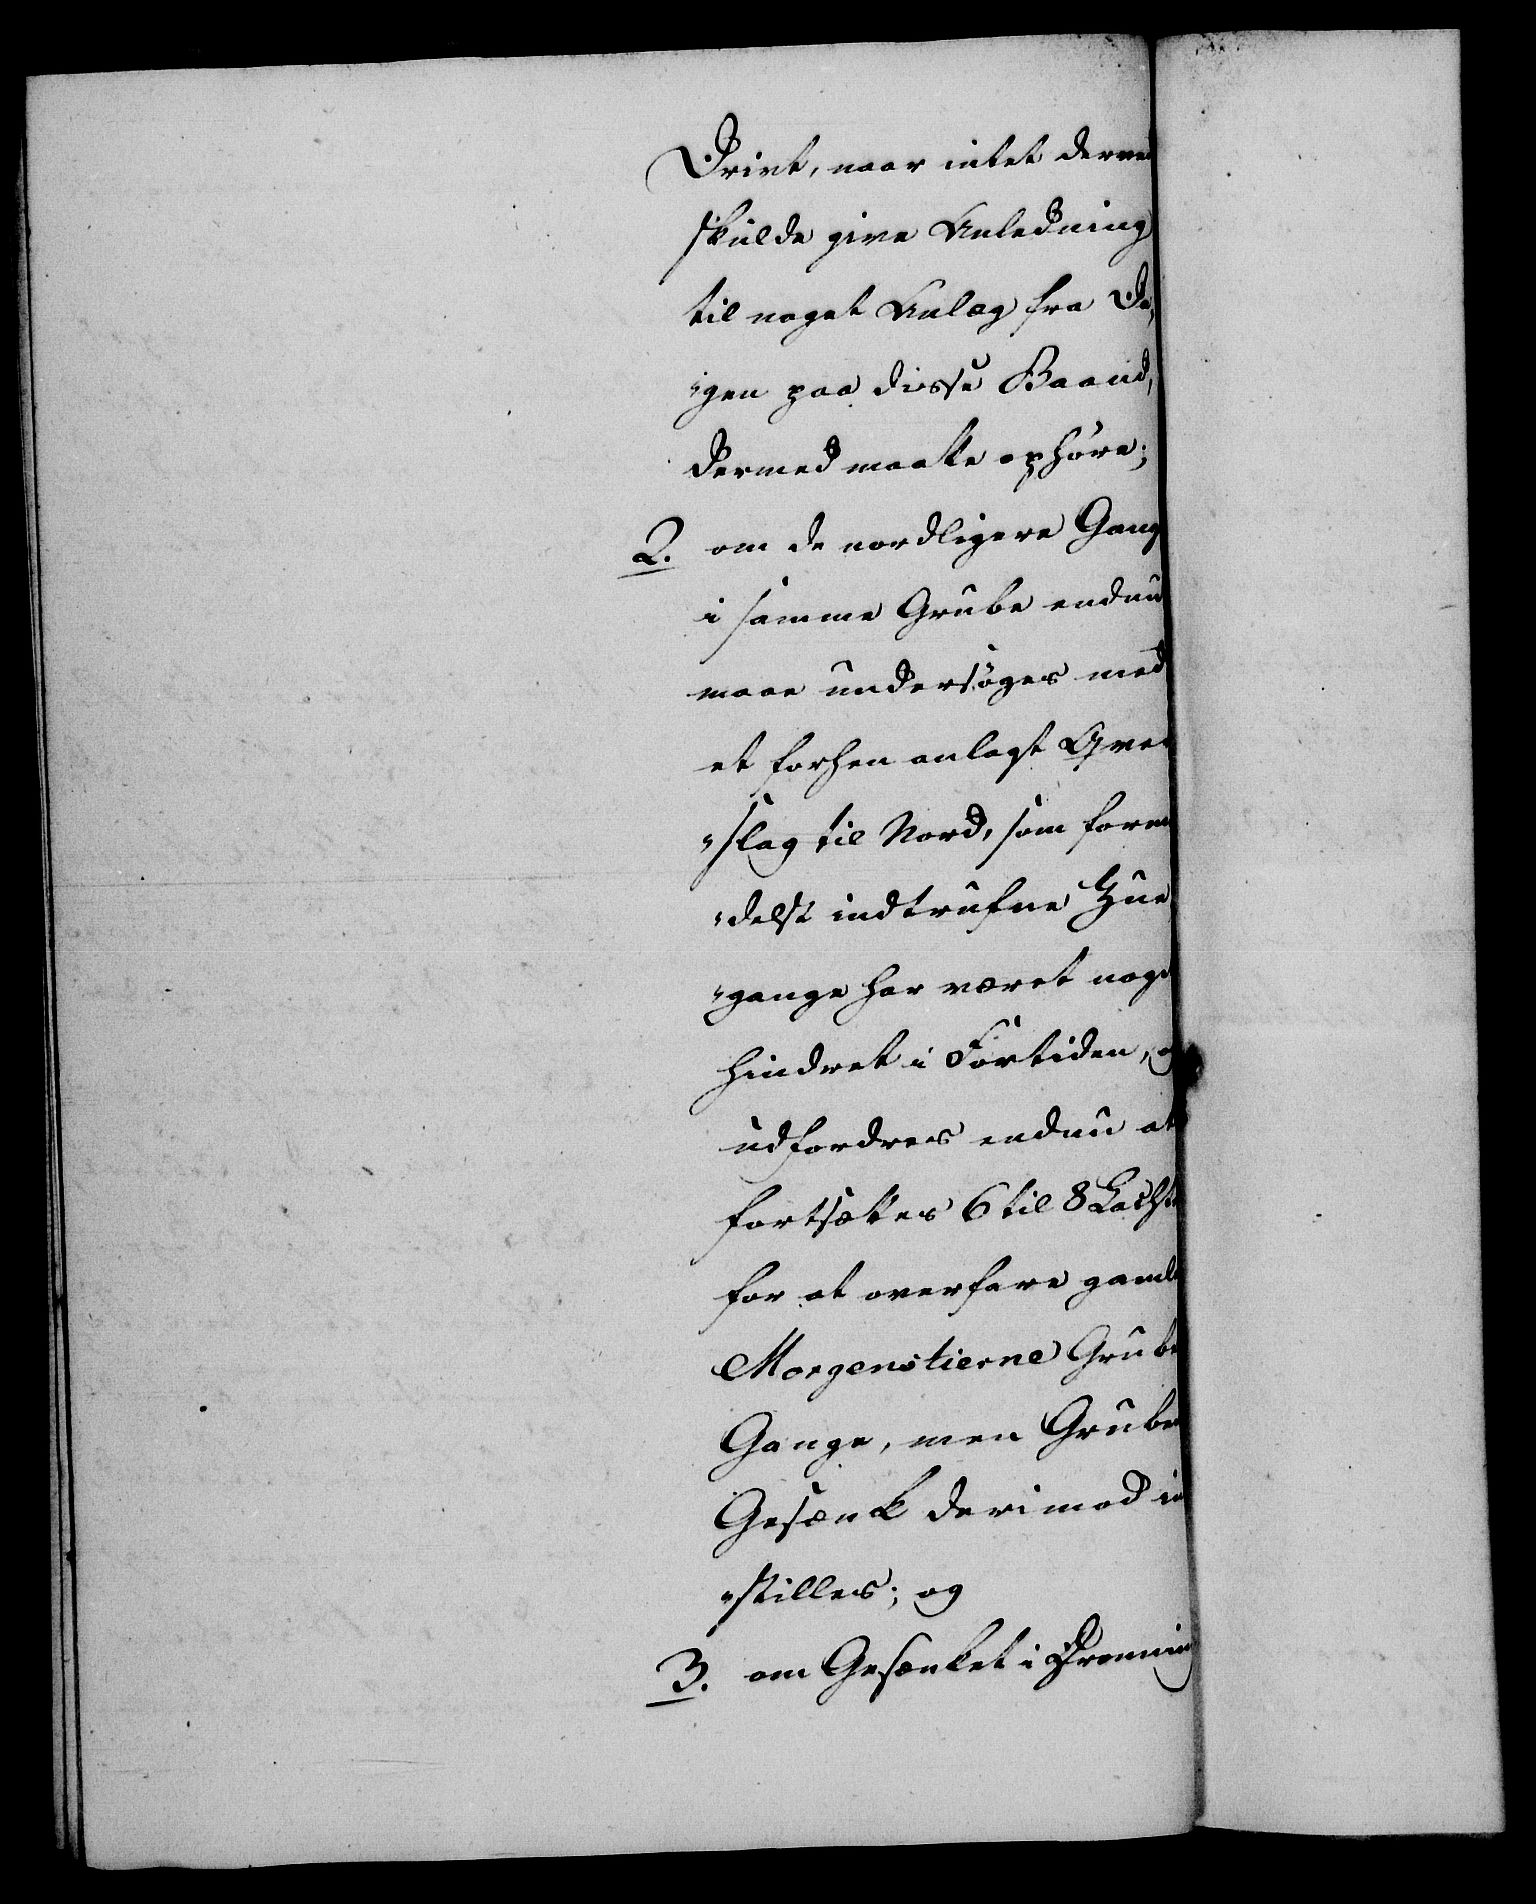 Drivt, naar intet derved
skulde give Anledning
til noget Anlæg fra Da,
"gen paa disse Baand,
dermed maatte ophöre;
2. om de nordligere Gang
i samme Grube endnu
maae undersöges med
et forhen anlagt Qver
"slag til Nord, som forme
"delst indtrufne Tue
"gange har været noget
hindret i Fortiden, og
udfordres endnu at
fortsættes 6 til 8 Lachter
for at overfare gamle
Morgenstierne Grube
Gange, men Grube
Gesænk derimod ind
"stilles; og
3. om Gesænket i Dronning